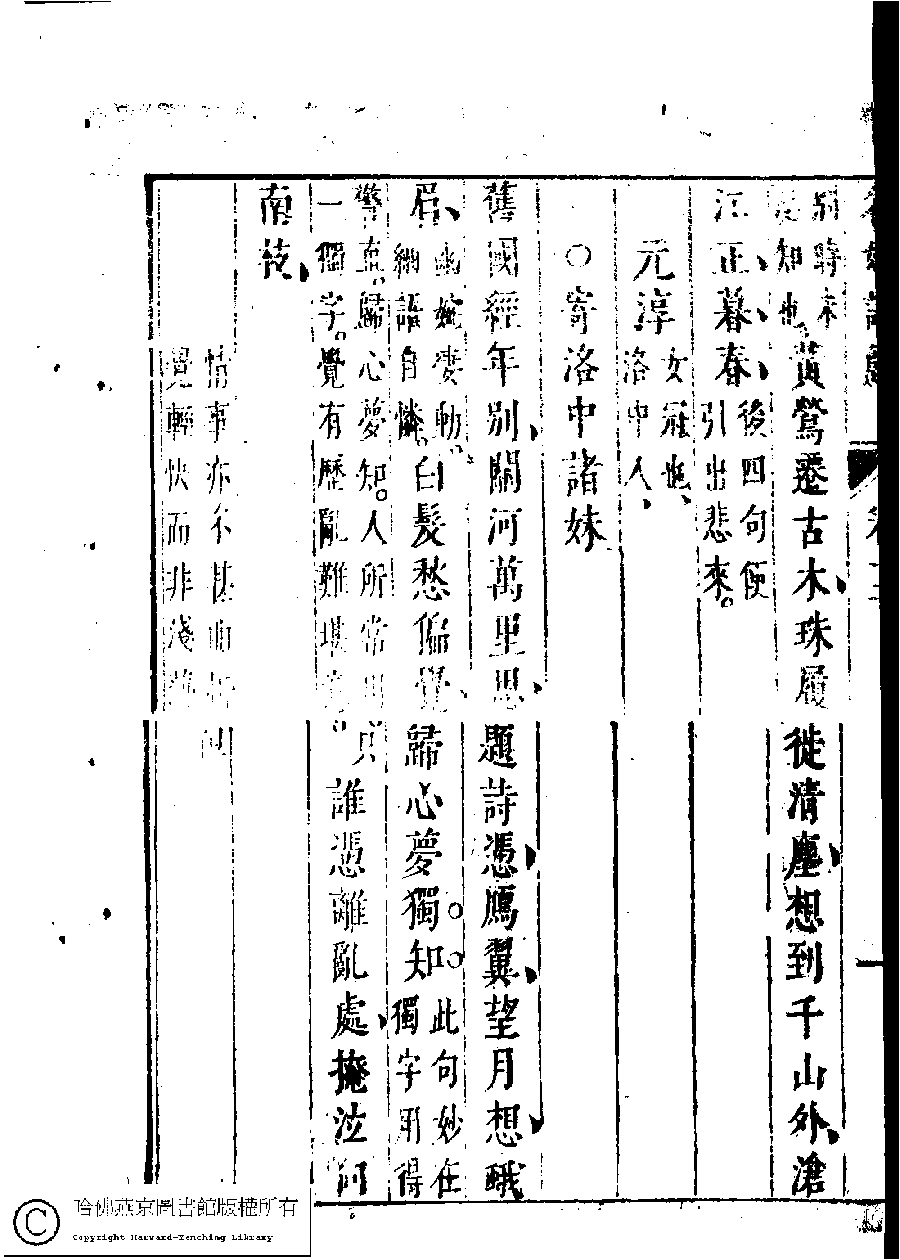 詩歸
別時未
知也黃鶯遷古木珠履徙清塵想到千山外滄
江正暮春後四句便
引出悲來。
元淳女冠也
洛中人
○寄洛中諸妹
舊國經年別關河萬里思題詩憑鴈翼望月想蛾
眉幽婉悽動。
細語自憐。白髮愁偏覺歸心夢獨知此句妙在
獨字用得
警直。歸心夢知。人所常用只
一獨字。覺有歷亂難堪意。誰憑離亂處掩泣向
南枝
情事亦不甚曲折似
覺輕快而非淺薄
哈佛燕京圖書館版權所有
Copyright Harvard-Yenching Library